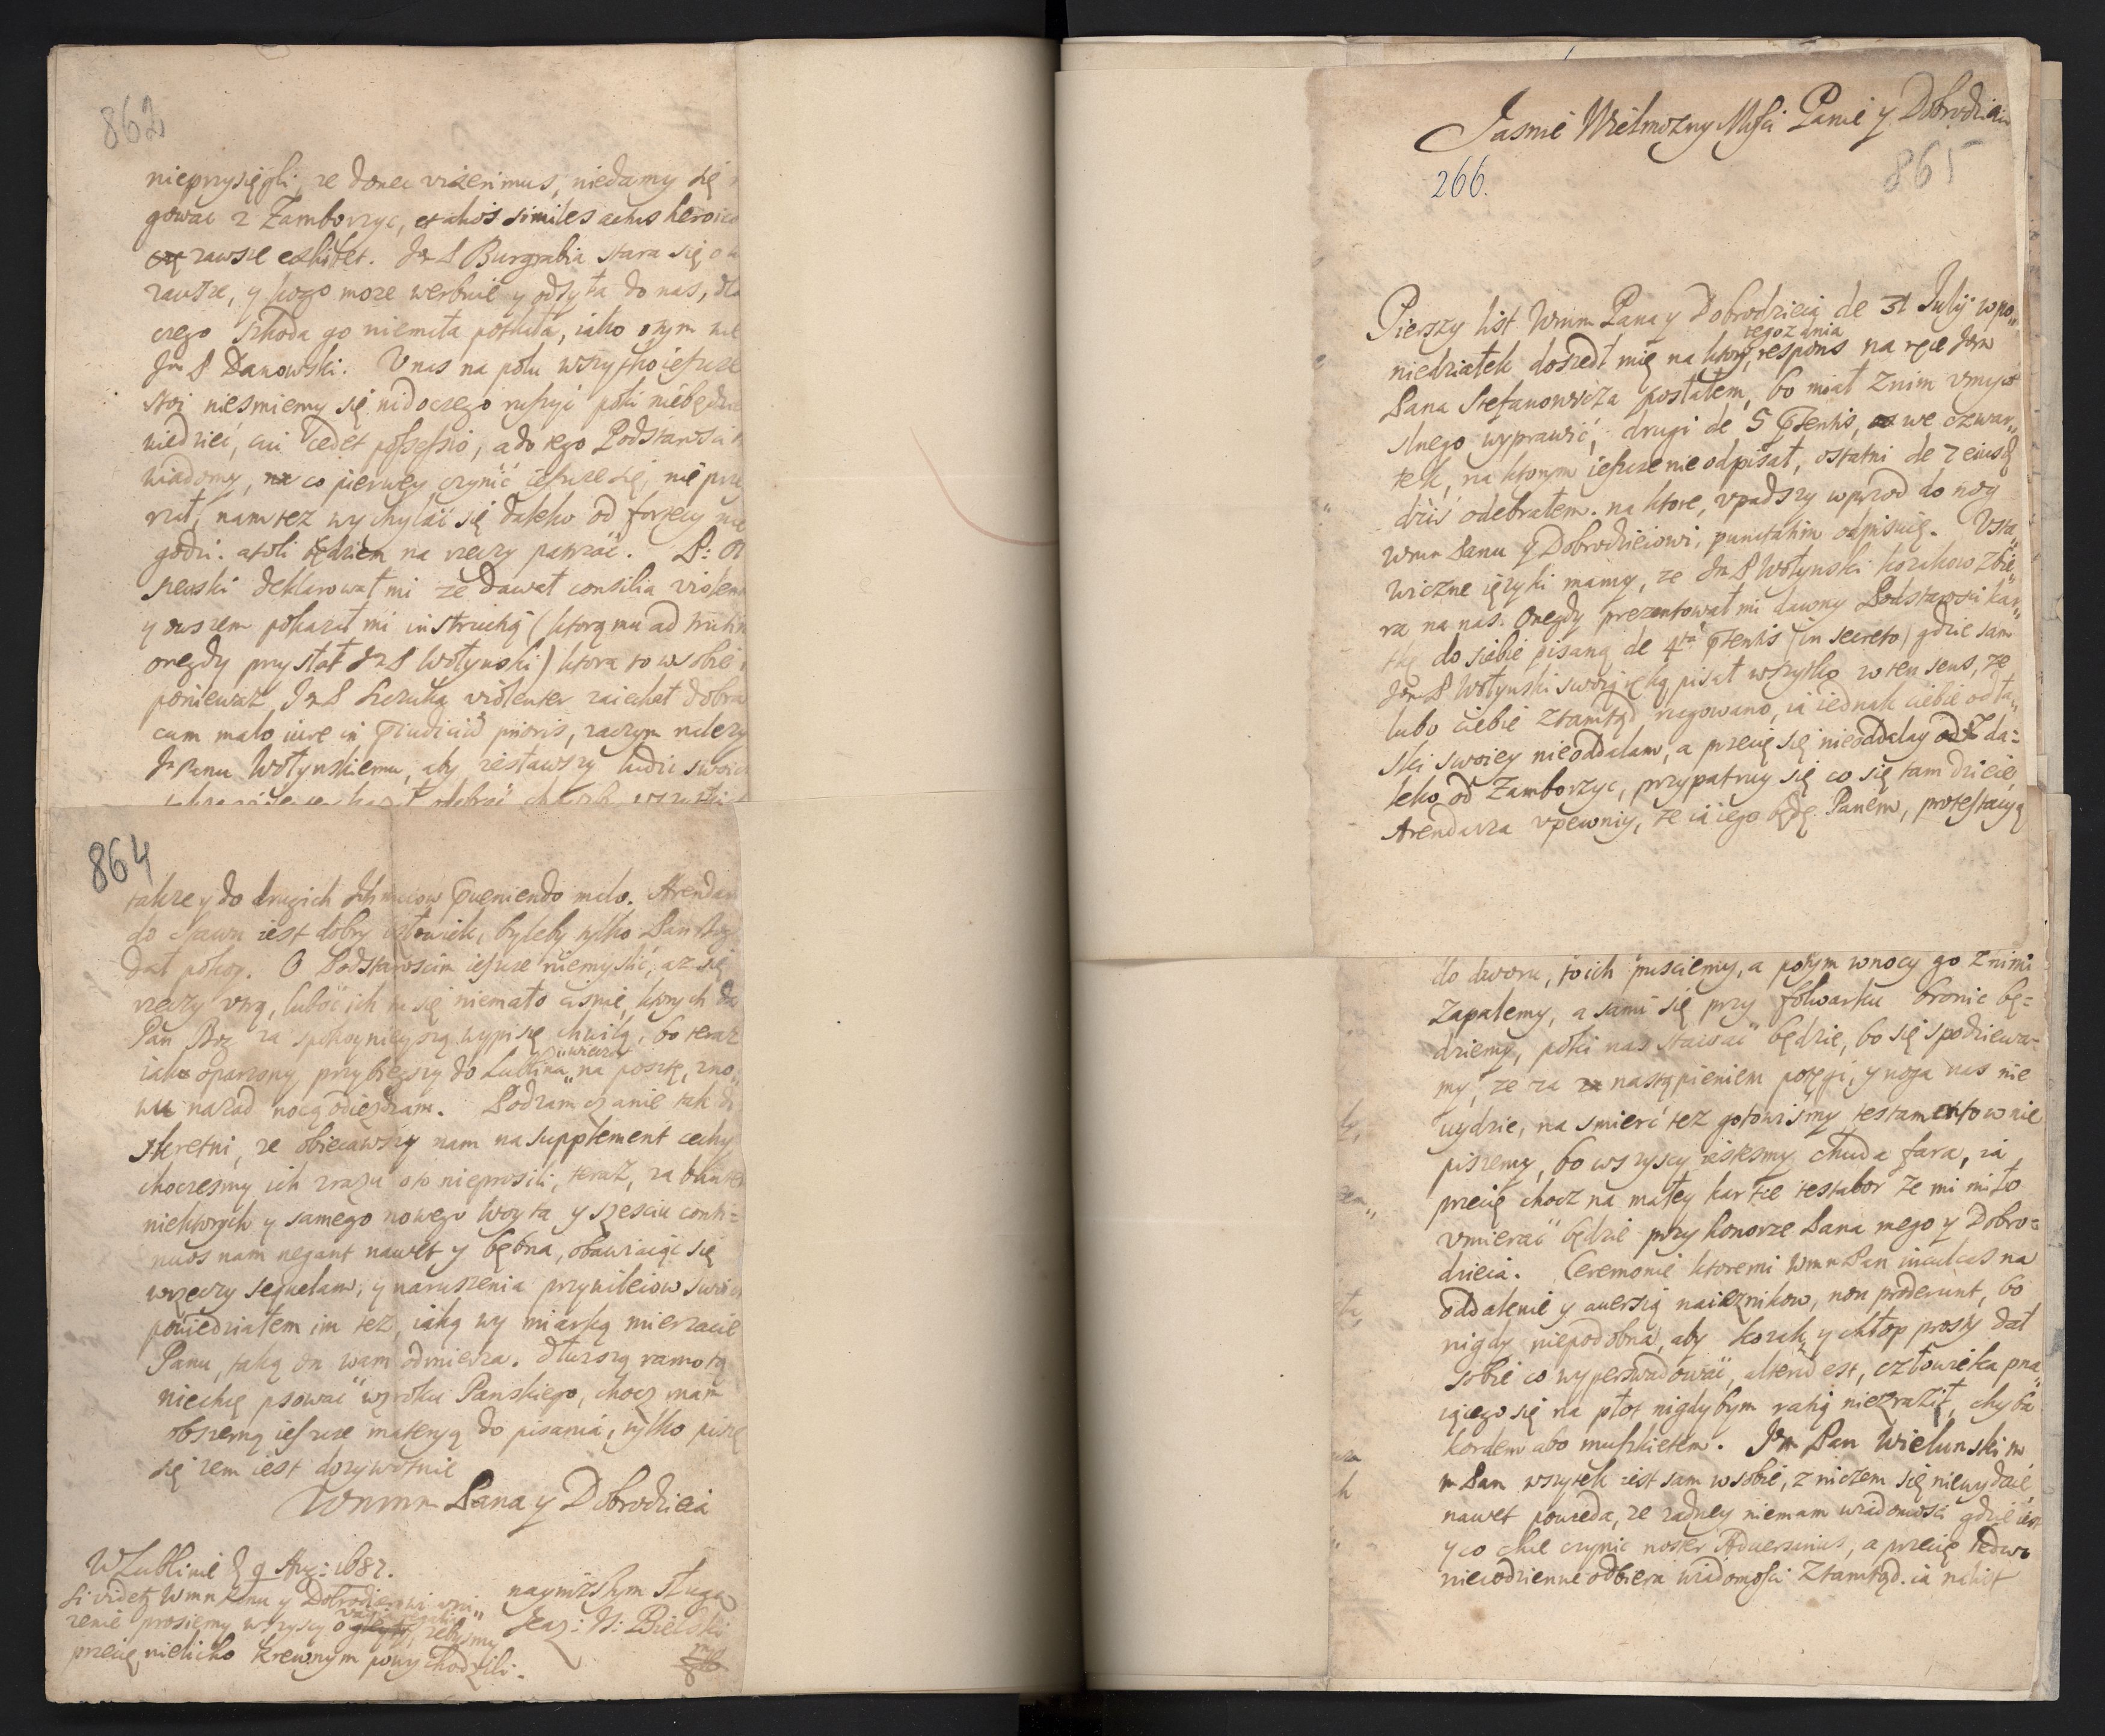 862
nieprzysięgli, ze donec vixerimus, niedamy się
gować z Zamborzyc, et alios similes actus heroico
zawsze exhibet. Jm P Burgrabia stara się o
zawsze, y kogo może werbuie y odsyła do nas, dla
czego szkoda go niemała potkała, iako o tym
Jm P Danowski. U nas na polu wszytko ieszcze
stoi niesmiemy się nidoczego ruszyć poki niebędzie
wiedzieć, cui cedet possessio, a do tego Podstarosci
wiadomy, co pierwey czynić ieszcze się nie prze
rzał, nam tez wychylać się daleko od fortecy nie
godzi. atoli będziem na rzeczy patrzać. P:
szewski deklarował mi ze dawał consilia violent
y owszem pokazał mi instrukcyą (ktorą mu ad
onegdy przysłał Jm P Wołynski) ktora to w sobie
poniewaz Jm P Szczuka violenter zaiechał dobra
cum malo iure in praeiudicium prioris, zaczym nalezy
Jm Panu Wołynskiemu, aby zestawszy ludzi swoich
864
takze y do drugich Ichmciow praeveniendo malo. Arendarz
do stawu iest dobry człowiek, byleby tylko Pan Bog
dał pokoy. O Podstaroscim ieszcze niemyslić, az się
rzeczy utrą, luboć ich tu się niemało cisnie, ktorych da
Pan Bog za spokoynieyszą wypiszę chwilą, bo teraz
iako oparzony przybiegszy do Lublina wieczor na posztę, zno„
wu nazad nocą odiezdzam. Podzamczanie tak di
skretni, ze obiecawszy nam na supplement cechy
chocesmy ich zrazu o to nieprosili, teraz, za bunte
niektorych y samego nowego Woyta y szesciu conti=
nuos nam negant nawet y bębna, obawiaiąc się
w rzeczy sequelam, y naruszenia przywileiow swoich
powiedziałem im tez, iaką wy miarką mierzacie
Panu, taką on wam odmierza. dłuzszą ramotą
niechcę psować wzroku Panskiego, chocz mam
obszerną ieszcze materyą do pisania, tylko piszę
się zem iest dozywotnie
Wmm Pana y Dobrodzieia
W Lublinie d 9 Aug: 1687.
Si videtur Wmm Panu y Dobrodzieiowi
naynizszym sługą
zenie prosiemy wszyscy o zebysmy
Bielski
przecię nielicho krewnym powychodzili.
mp
Jasnie Wielmozny Mosci Panie y Dobrodzieiu
865
266.
Pierszy list Wmm Pana y Dobrodzieia de 31 Julij w po„
niedziałek doszedł mię na ktory tegoz dnia respons na ręce Jm
Pana Stefanowicza posłałem, bo miał z nim umysl
slnego wyprawić, drugi de 5 praesentis, we czwar„
tek, na ktorym ieszcze nie odpisał, ostatni de 7 eiusd
dzis odebrałem. na ktore, upadszy wprzod do nog
Wmm Panu y Dobrodzieiowi, punctatim odpisuię. Usta„
wiczne ięzyki mamy, ze Jm P Wołynski kozakow zbie„
ra na nas. Onegdy prezentował mi dawny Podstarosci kar„
tkę do siebie pisaną de 4ta praesentis (in secreto) gdzie sam
Jm P Wołynski swoią ręką pisał wszytko w ten sens, ze
lubo ciebie ztamtąd rugowano, ia iednak ciebie od ła„
ski swoiey nieoddalam, a przecię się nieoddalay da=
leko od Zamborzyc, przypatruy się co się tam dzieie,
Arendarza upewniy, ze ia iego będę Panem, protestacyą
do dworu, to ich pusciemy, a potym w nocy go z nimi
zapalemy, a sami się przy folwarku bronic bę=
dziemy, poki nas stawać będzie, bo się spodziewa=
my, ze za nastąpieniem potęgi, y noga nas nie
uydzie, na smierć tez gotowismy, testamentow nie
piszemy, bo wszyscy iestesmy chuda fara, ia
przecię chocz na małey kartce testabor ze mi miło
umierać będzie przy honorze Pana mego y Dobro=
dzieia. Ceremonie ktoremi Wmm Pan inculcas na
oddalenie y auersią naiezników, non proderunt, bo
nigdy niepodobna, aby kozak, y chłop prosty dał
sobie co wyperswadować, alterum est, człowieka pna„
iącego się na płot nigdy bym racią niezraził, chyba
kordem abo muszkietem. Jm Pan Wielunski m
m Pan wszytek iest sam w sobie, z niczem się niewydaie,
nawet powieda, ze zadney niemam wiadomosci gdzie iest
y co chce czynic noster Aduersarius, a przecię ledwo
niecodzienne odbiera wiadomosci ztamtąd. ia nawet